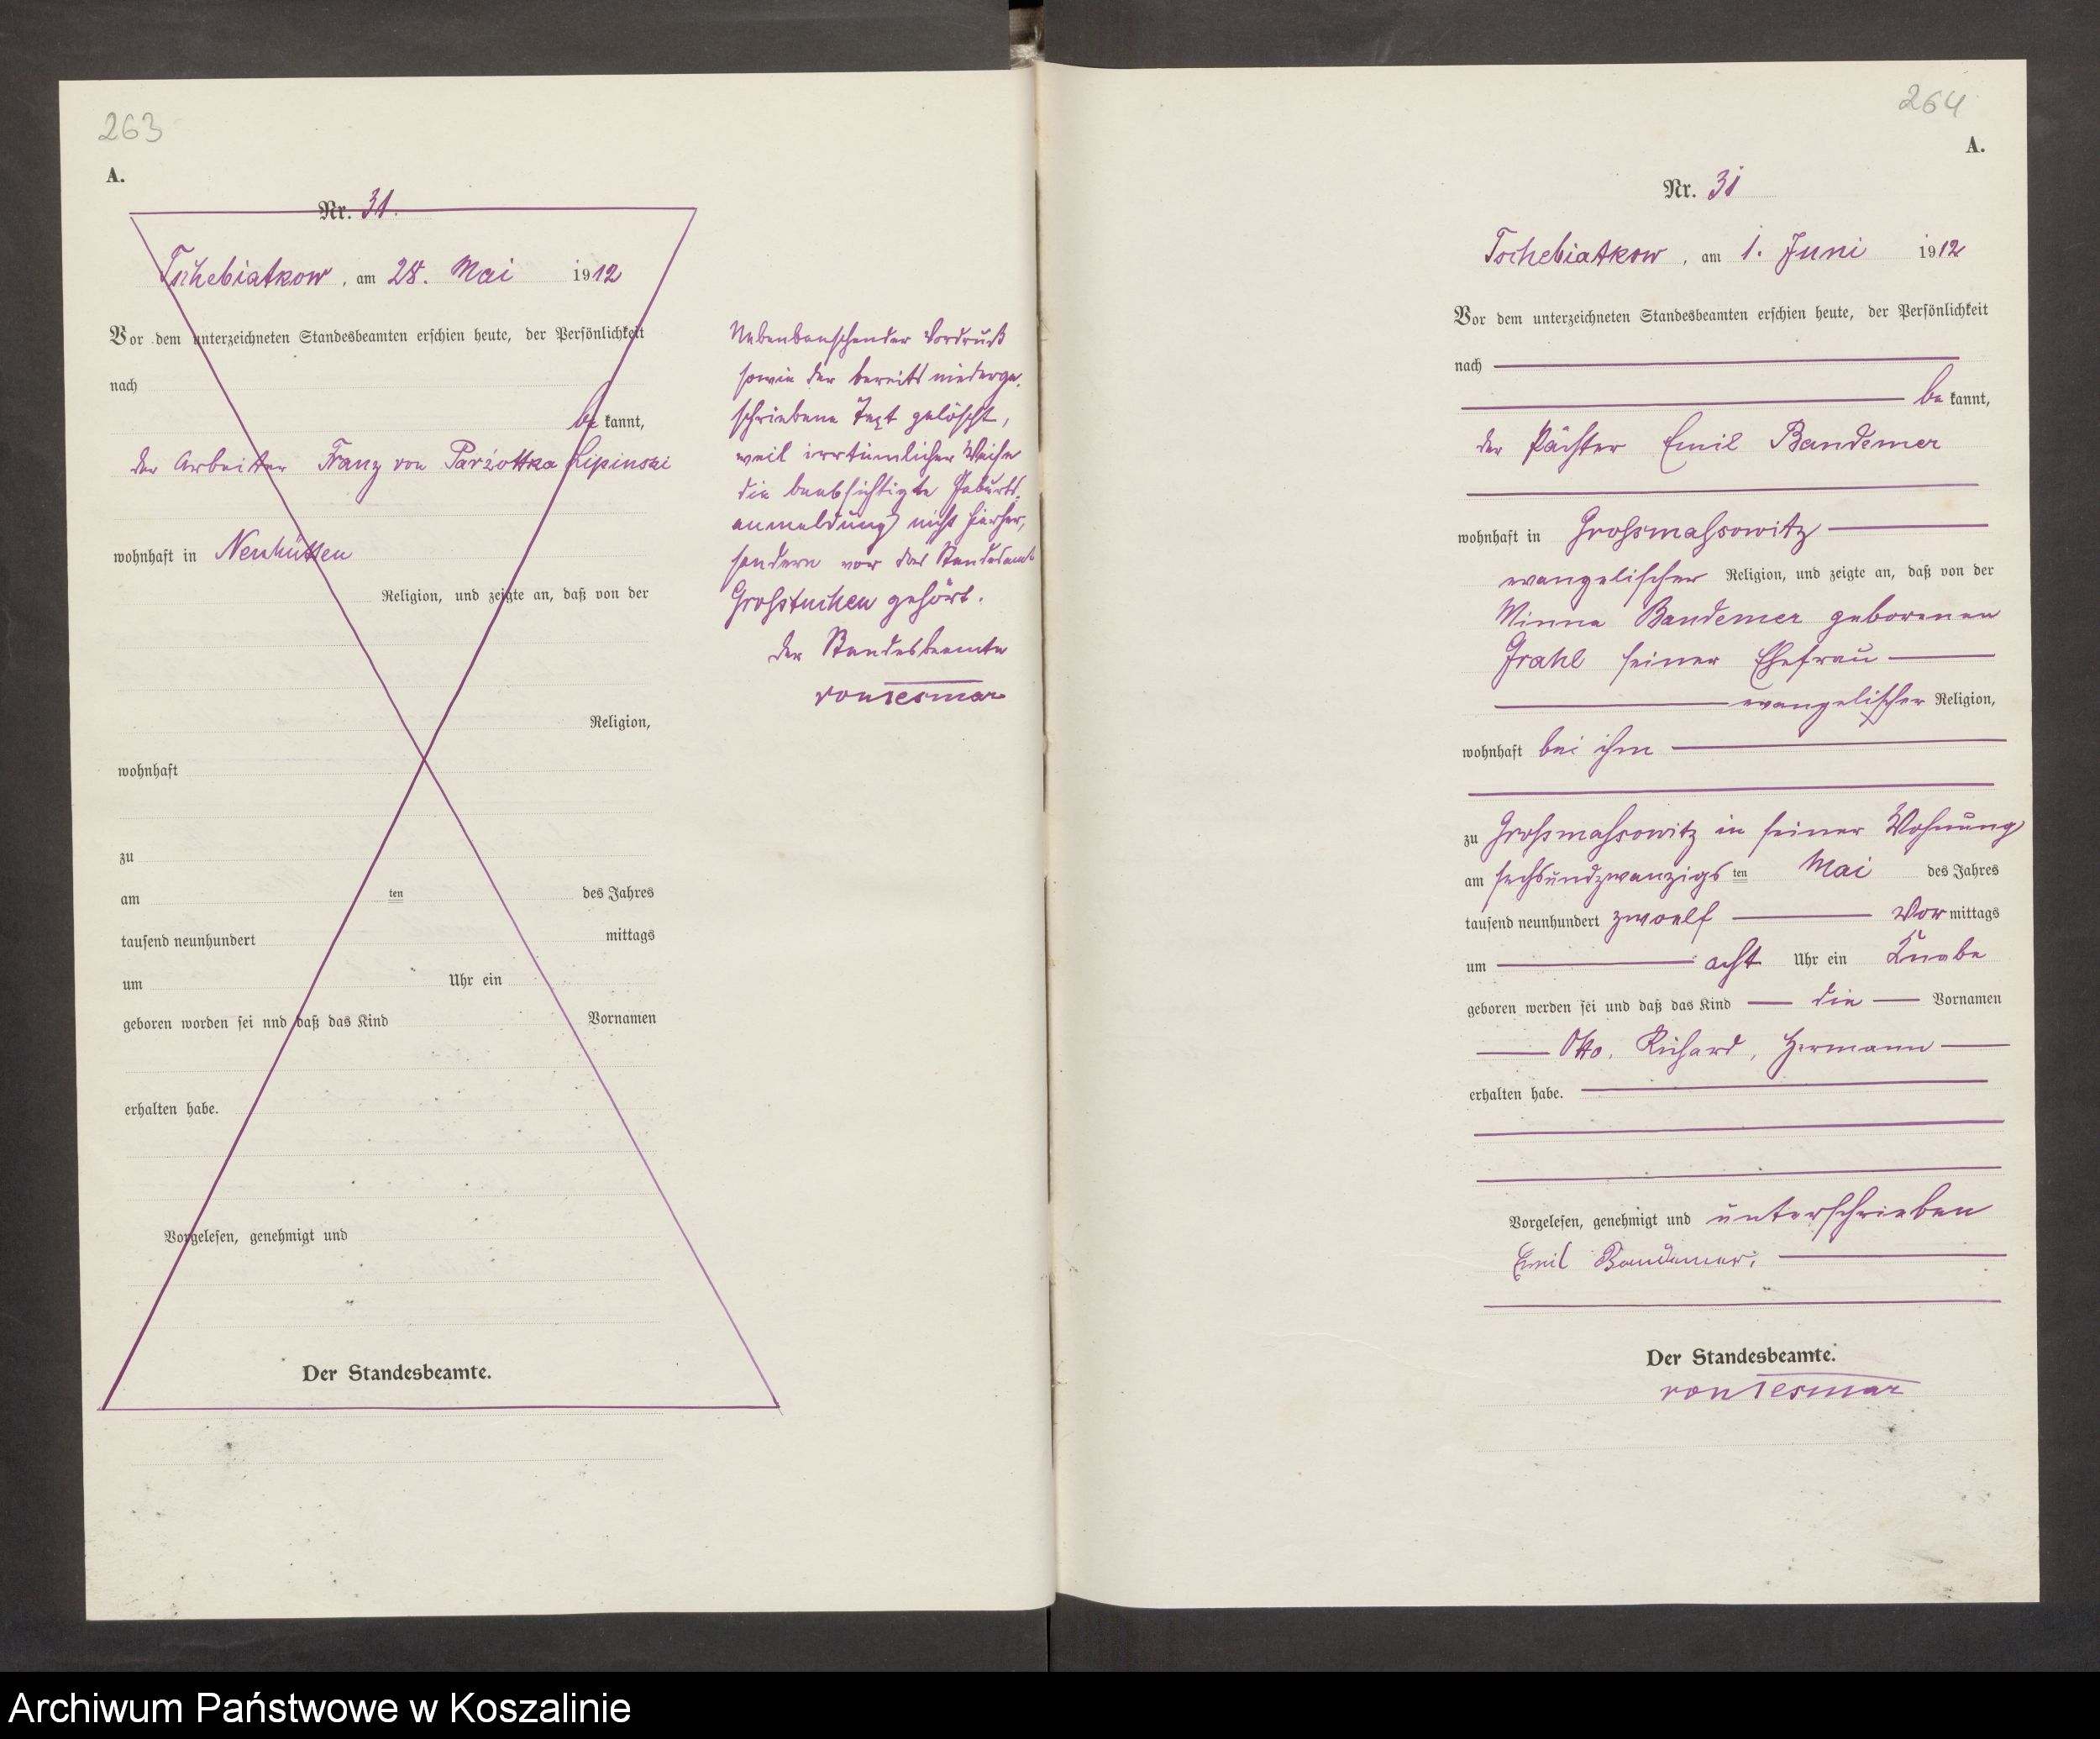 263
A.
Nr. 31.
Tschebiatkow, am 28. Mai 1912
Vor dem unterzeichneten Standesbeamten erschien heute, der Persönlichkeit
nach
be kannt,
der Arbeiter Franz von Parzottka Lipinski
wohnhaft in Neuhütten
Religion, und zeigte an, daß von der
Religion,
wohnhaft
zu
am ten des Jahres
tausend neunhundert mittags
um Uhr ein
geboren worden sei nnd daß das Kind Vornamen
erhalten habe.
Vorgelesen, genehmigt und
Der Standesbeamte.
Vordruck
sowie der bereits niederge-
schriebene Text gelöscht,
weil irrtümlicher Weise
die beabsichtigte Geburts-
anmeldung nicht hierher,
sondern vor das Standesamt
Großtuchen gehört.
Der Standesbeamte
von Tesmar
264
A.
Nr. 31
Tschebiatkow, am 1. Juni 1912
Vor dem unterzeichneten Standesbeamten erschien heute, der Persönlichkeit
nach
be kannt,
der Pächter Emil Bandemer
wohnhaft in Großmassowitz
evangelischer Religion, und zeigte an, daß von der
Minna Bandemer geborenen
Grahl seiner Ehefrau
evangelischer Religion,
wohnhaft bei ihm
zu Großmassowitz in seiner Wohnung
am sechsundzwanzigs ten Mai des Jahres
tausend neunhundert zwoelf Vor mittags
um acht Uhr ein Knabe
geboren worden sei und daß das Kind die Vornamen
Otto, Richard, Hermann
erhalten habe.
Vorgelesen, genehmigt und unterschrieben
Emil Bandemer.
Der Standesbeamte.
von Tesmar
Archiwum Państwowe w Koszalinie